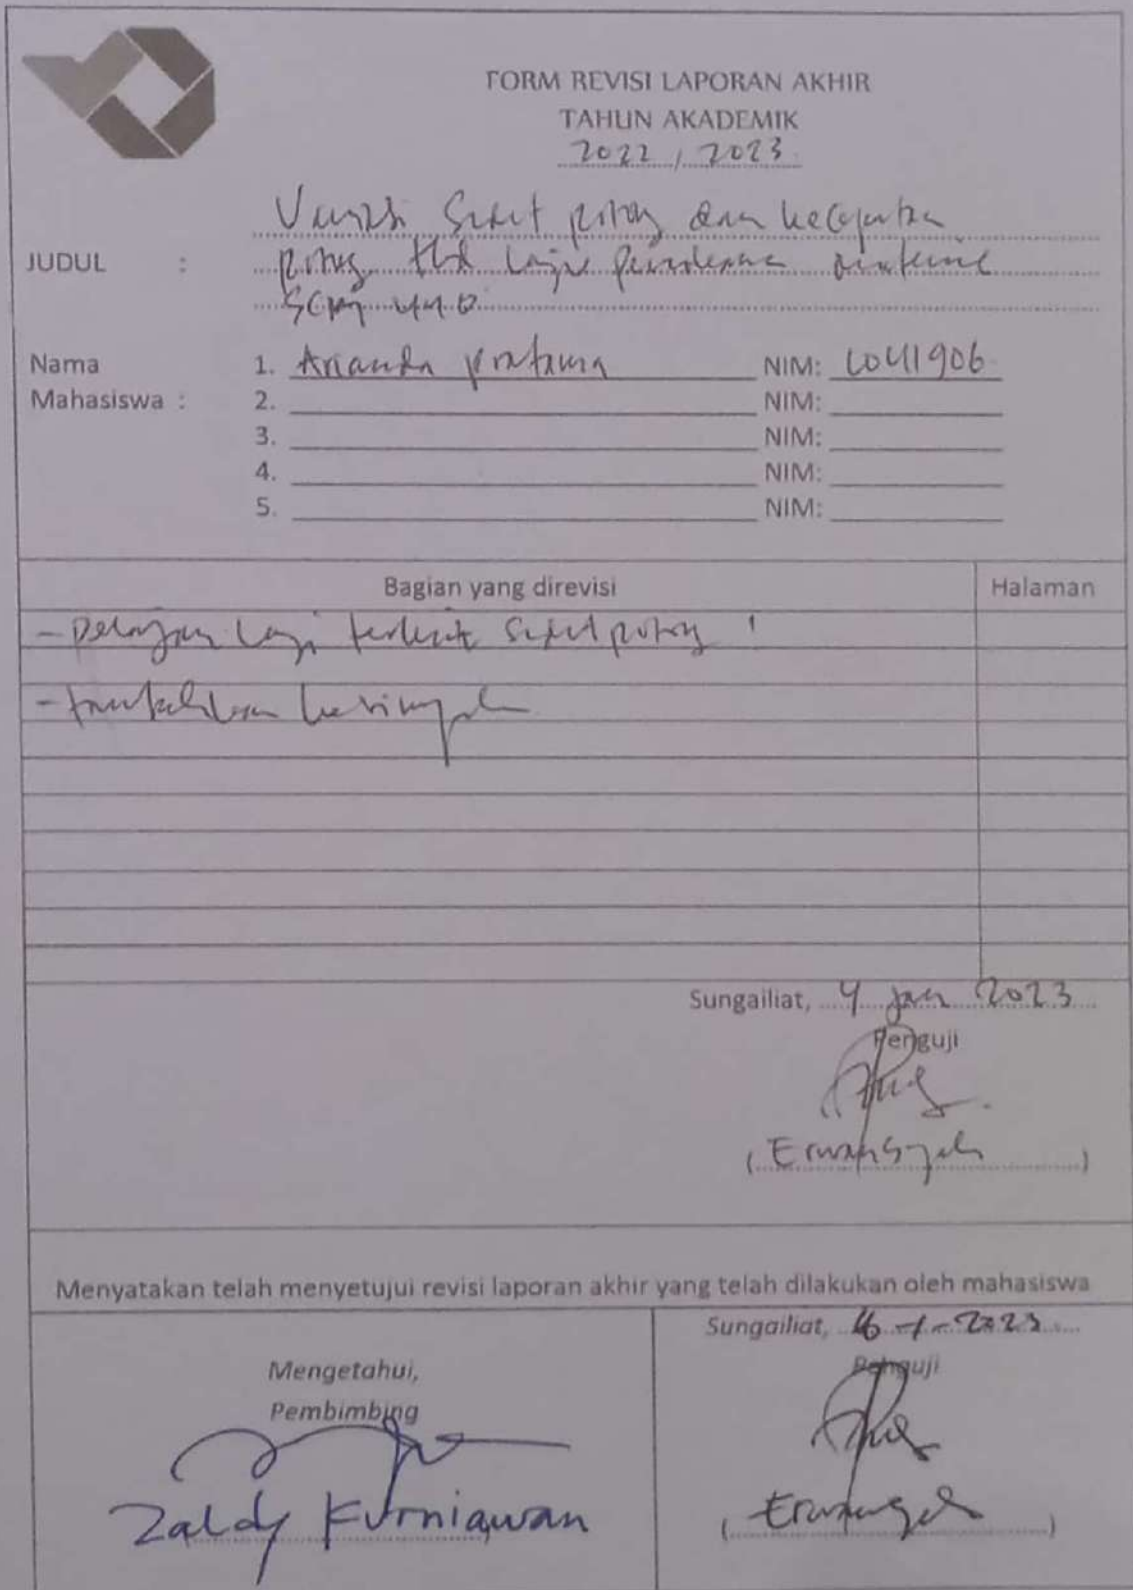 FORM REVISI LAPORAN AKHIR
TAHUN AKADEMIK
2022 / 2023
Variasi Sudut potong dan kecepatan
JUDUL : potong thd Laju
SCM 440
Nama 1. Ananda pratama NIM: 1041906
Mahasiswa : 2. NIM:
3. NIM:
4. NIM:
5. NIM:
Bagian yang direvisi Halaman
- pelajari lagi terkait Sudut potong !
- tambahkan kesimpulan
Sungailiat, 4 jan 2023
Penguji
( Erwansyah )
Menyatakan telah menyetujui revisi laporan akhir yang telah dilakukan oleh mahasiswa
Sungailiat, 16 -1- 2023
Mengetahui, Penguji
Pembimbing
Zaldy Kurniawan ( Erwansyah )